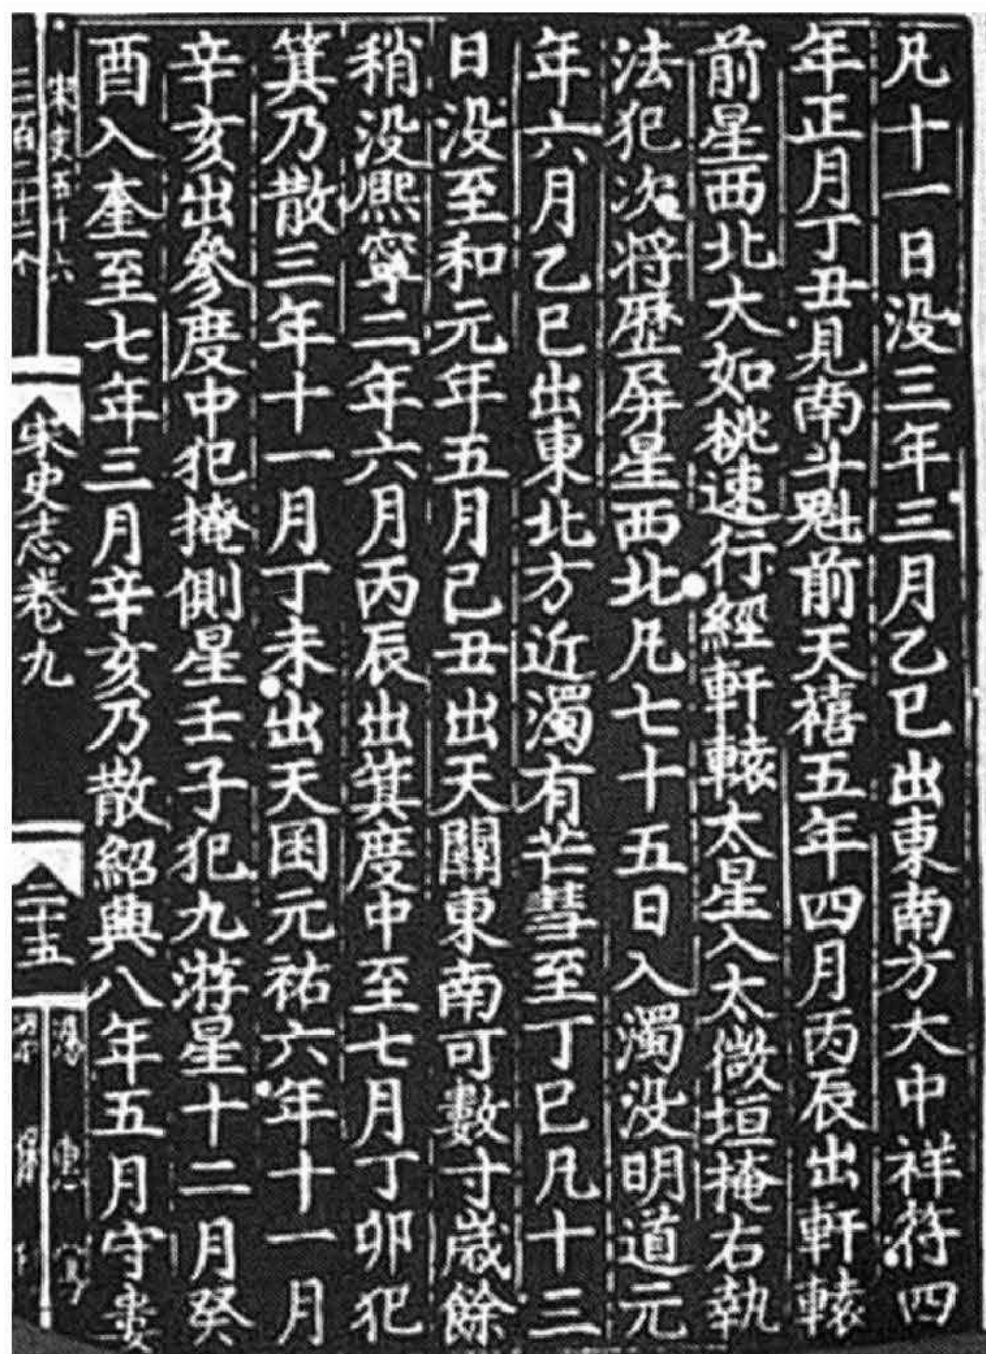 凡十一日没三年三月乙巳出東南方大中祥符四
年正月丁丑見南斗魁前天禧五年四月丙辰出軒轅
前星西北大如桃速行經軒轅太星入太微垣掩右執
法犯次將歷屏星西北凡七十五日入濁没明道元
年六月乙巳出東北方近濁有芒彗至丁巳凡十三
日没至和元年五月己丑出天關東南可數寸歲餘
稍没熈寧二年六月丙辰出箕度中至七月丁卯犯
箕乃散三年十一月丁未出天囷元祐六年十一月
辛亥出參度中犯掩側星壬子犯九游星十二月癸
酉入奎至七年三月辛亥乃散紹興八年五月守婁
宋史五十六
三百二十二个
宋史志卷九
二十五